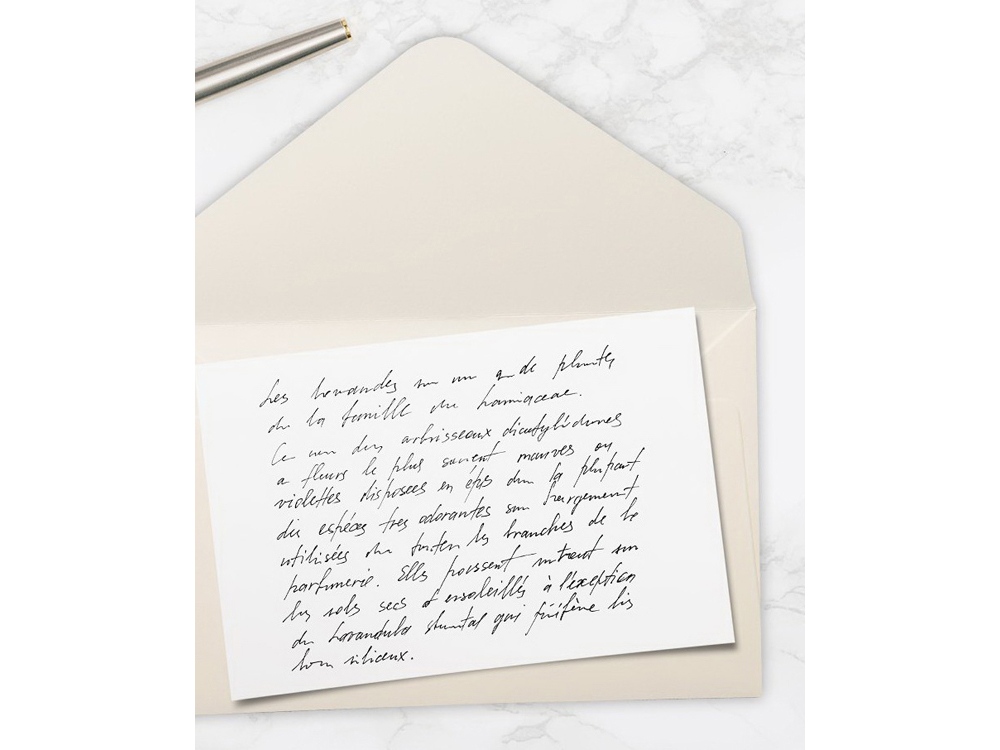 Les lavandes un de plantes
de la famille du Lamiaceae.
Ce arbrisseaux dicotylédones
a fleurs le plus souvent mauves ou
violettes disposees en épis la plupart
espéces tres odorantes largement
utilisées branches de la
parfumerie. Elles poussent surtout
les sols secs et ensoleillés à l'exception
du Lavandula qui préfère les
siliceux.